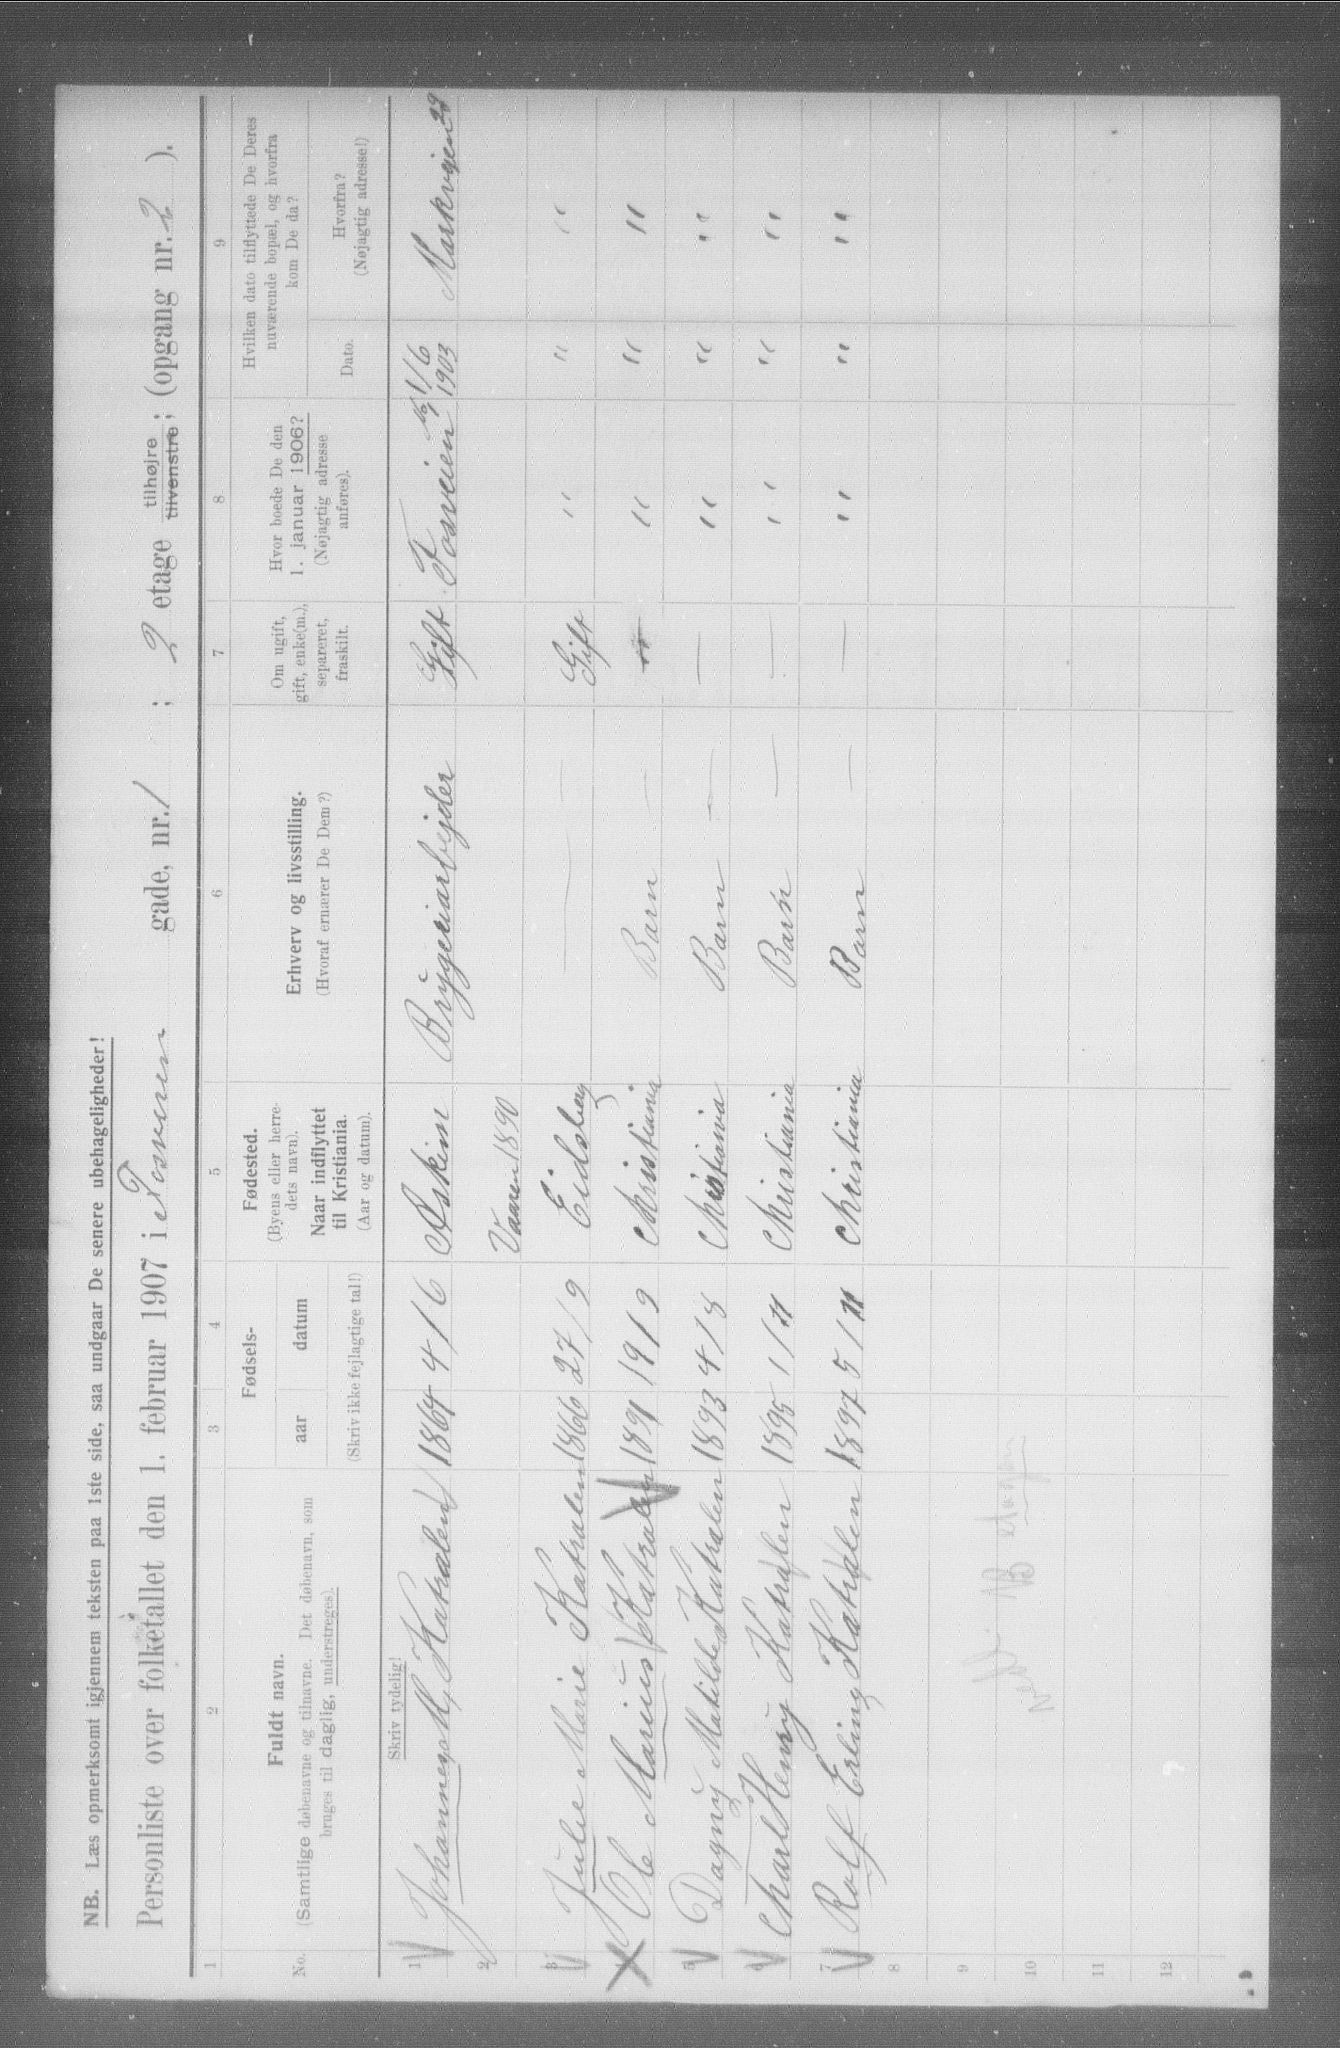 NB. Læs opmerksomt igjennem teksten paa 1ste side, saa undgaar De senere ubehageligheder!
Personliste over folketallet den 1. februar 1907 i Fosveien gade, nr. 1 ; 2 etage tilhøjre tilvenstre; (opgang nr. 2 ).
1 2 3 4 5 6 7 8 9
No.
Fuldt navn.
(Samtlige døbenavne og tilnavne. Det døbenavn, som
bruges til daglig, understreges).
Fødsels-
aar datum
(Skriv ikke fejlagtige tal!)
Fødested.
(Byens eller herre-
dets navn).
Naar indflyttet
til Kristiania.
(Aar og datum).
Erhverv og livsstilling.
(Hvoraf ernærer De Dem?)
Om ugift,
gift, enke(m.),
separeret,
fraskilt.
Hvor boede De den
1. januar 1906?
(Nøjagtig adresse
anføres).
Hvilken dato tilflyttede De Deres
nuværende bopæl, og hvorfra
kom De da?
Dato.
Hvorfra?
(Nøjagtig adresse!)
Skriv tydelig!
1 Johannes M. Katralen 1864 4/6 Askim Bryggeriarbejder Gift Fosveien No 1 1/6 1903 Markveien
2 Vaaren 1890
3 Julie Marie Katralen 1866 27/9 Eidsberg — Gift " " "
Ole Marius Katralen 1891 19/9 Christiania Barn — " " "
5 Dagny Matilde Katralen 1893 4/8 Christiania Barn — — " " "
6 Charl Henry Katralen 1895 1/11 Christiania Barn — — " " "
7 Rolf Erling Katralen 1897 5/11 Christiania Barn — — " " "
8
9
10
11
12